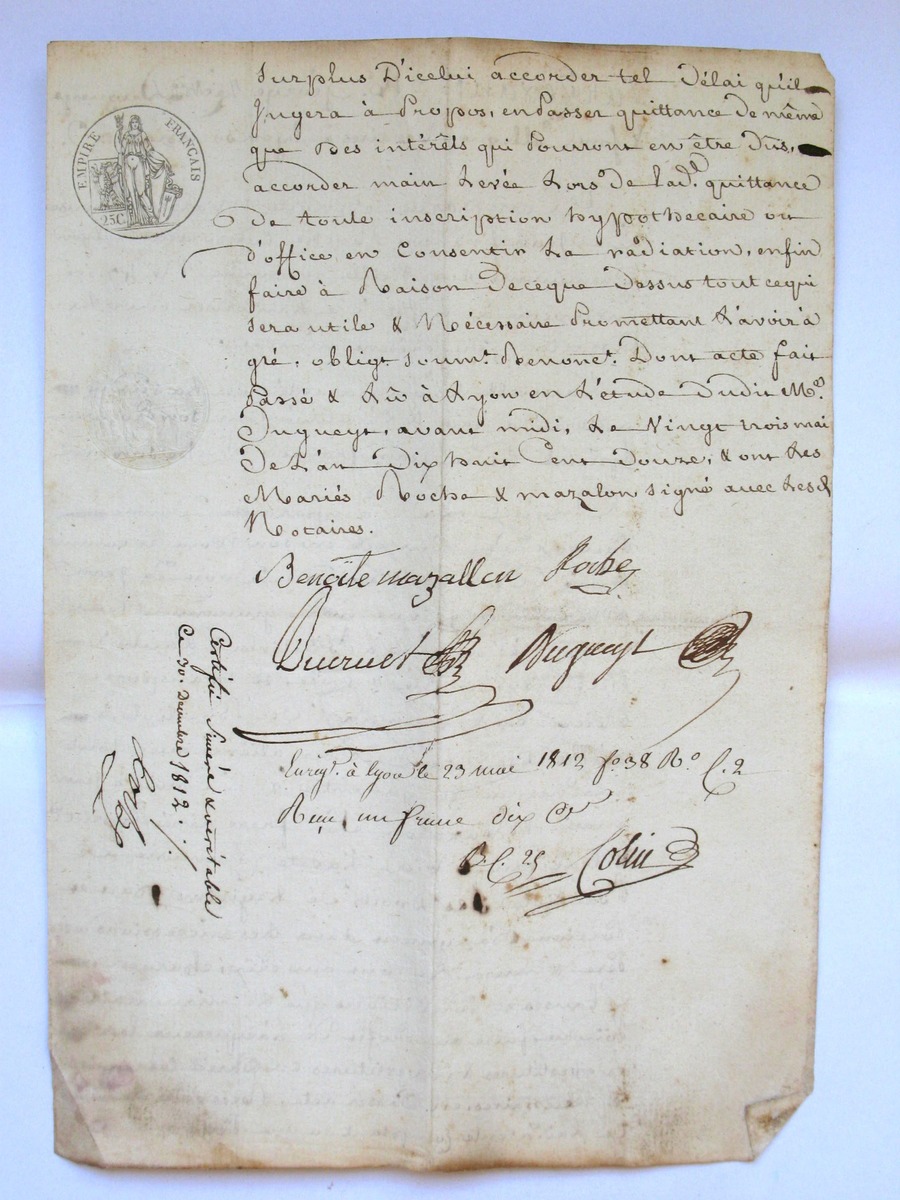 EMPIRE FRANÇAIS
25C.
Surplus D'icelui accorder tel Délai qu'il
Jugera à Propos, en Passer quittance de même
que des intérêts qui Pourront en être Dus,
accorder main Levée Lors de lad.e quittance
de toute inscription hypothecaire ou
d'office en Consentir La radiation, enfin
faire à Raison de ce que Dessus tout ce qui
sera utile & Nécessaire Promettant L'avoir à
gré, obligt. soumt. Renonct. Dont acte fait
Passé & Lû à Lyon en L'étude Dudit Me.
Dugueyt, avant midi, Le Vingt trois mai
De L'an Dix huit Cent Douze, & ont Les
Mariés Roche & mazalon signé avec Les d.
Notaires.
Benoîte mazallon Roche
Ducruet Dugueyt
Enrigt. à Lyon le 23 mai 1812 fo. 38 Ro. C. 2
Reçu un franc dix Cs
C. 25 Colin
Certifié Sincère & véritable
Ce 30. Décembre 1812.